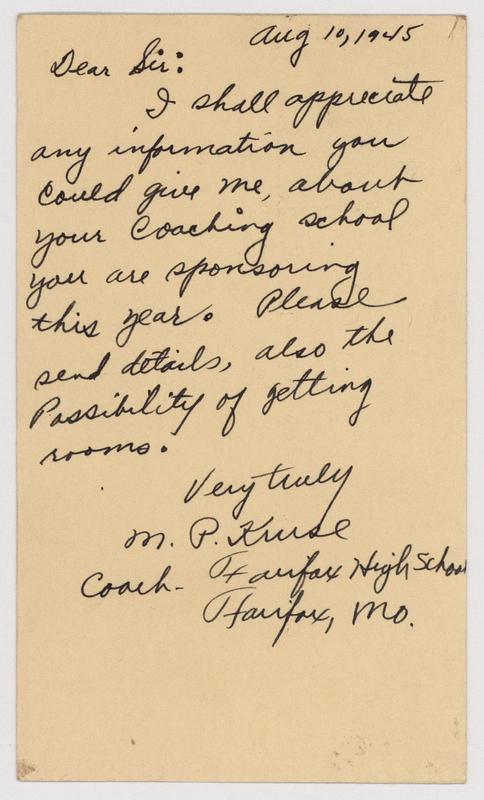 Aug 10, 1945
Dear Sir:
I shall appreciate
any information you
could give me, about
your Coaching school
you are sponsoring
this year. Please
send details, also the
Possibility of getting
rooms.
Very truly
M. P. Kruse
Coach - Fairfax High School
Fairfax, Mo.